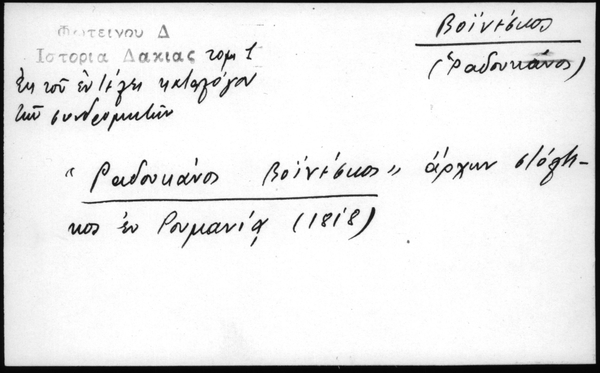 Φωτεινου Δ
Ιστορια Δακιας τομ 1
Εκ τοῦ ἐν τέλει καταλόγου
τῶν συνδρομητῶν
Βοϊνέσκος
(Ραδουκάνος)
"Ραδουκάνος Βοϊνέσκος" ἄρχων στόλνι-
κος ἐν Ρουμανίᾳ (1818)